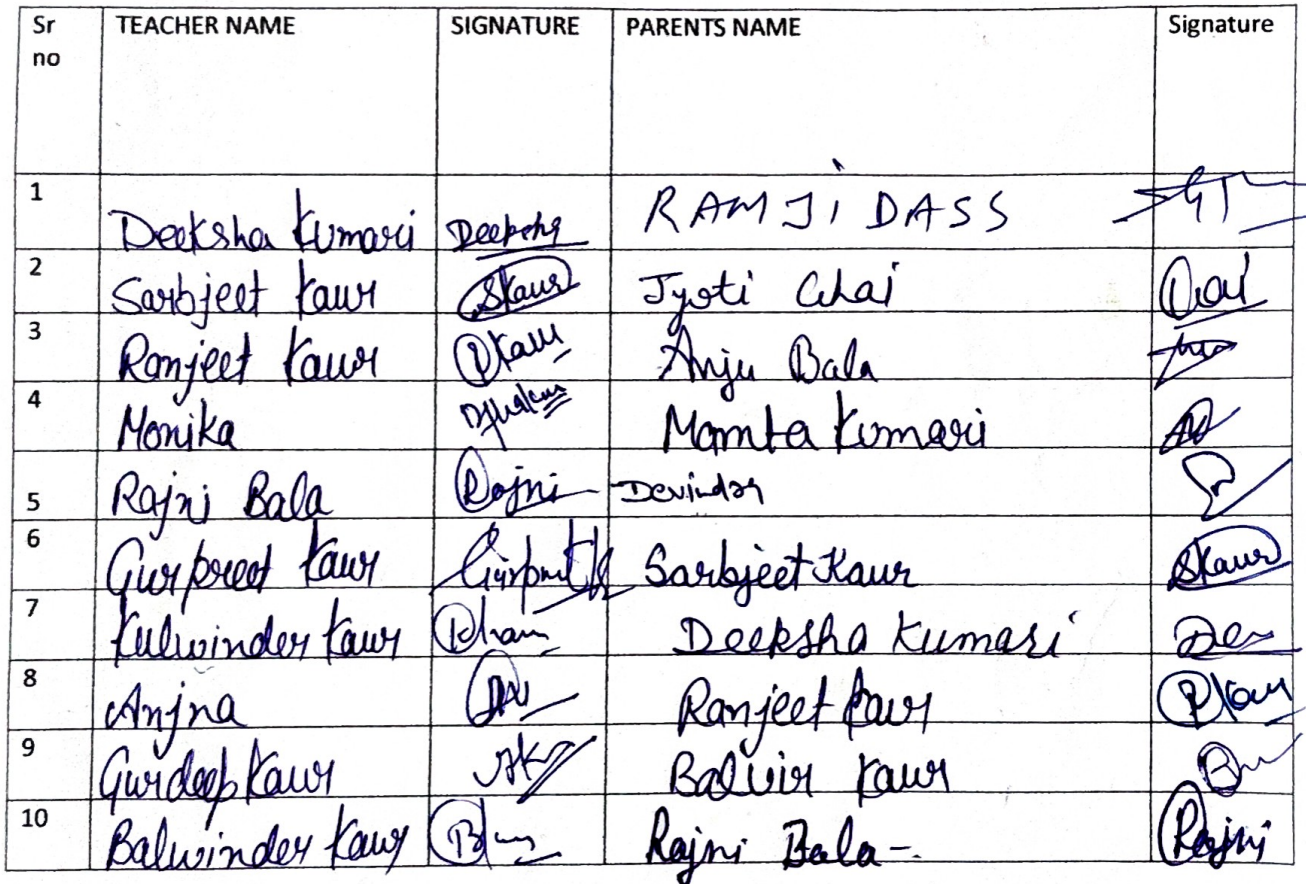 Sr no TEACHER NAME SIGNATURE PARENTS NAME Signature
1 Deeksha Kumari RAMJI DASS
2 Sarbjeet Kaur SKaur Jyoti
3 Ranjeet Kaur RKaur Anju Bala
4 Monika Mamta Kumari
5 Rajni Bala Rajni Devinder
6 Gurpreet Kaur Sarbjeet Kaur SKaur
7 Kulwinder Kaur Deeksha Kumari
8 Anjna Ranjeet Kaur RKaur
9 Gurdeep Kaur Balvir Kaur
10 Balwinder Kaur Rajni Bala Rajni